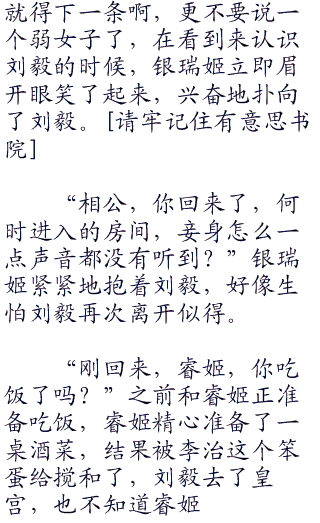 就得下一条啊，更不要说一
个弱女子了，在看到来认识
刘毅的时候，银瑞姬立即眉
开眼笑了起来，兴奋地扑向
了刘毅。[请牢记住有意思书
院]
“相公，你回来了，何
时进入的房间，妾身怎么一
点声音都没有听到？”银瑞
姬紧紧地抱着刘毅，好像生
怕刘毅再次离开似得。
“刚回来，睿姬，你吃
饭了吗？”之前和睿姬正准
备吃饭，睿姬精心准备了一
桌酒菜，结果被李治这个笨
蛋给搅和了，刘毅去了皇
宫，也不知道睿姬